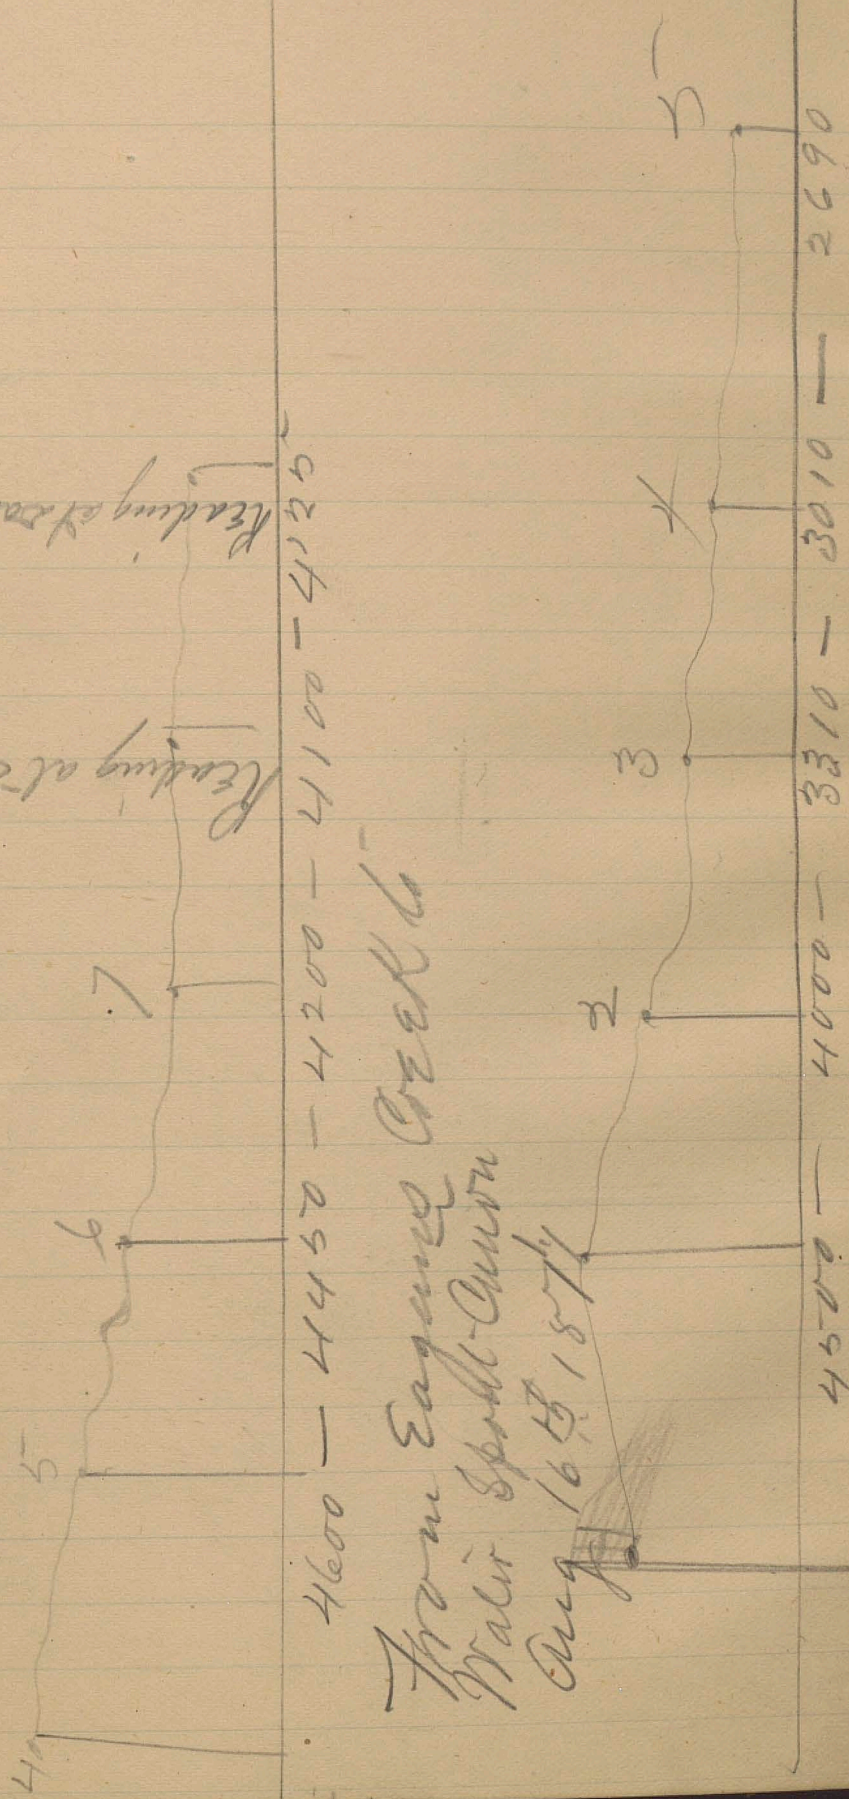 4 5 6 7
Reading at
Reading at
4600 — 4450 — 4200 — 4100 — 4125
From Eagans Creek to
Water Spout Canon
Aug 16th 1871
2 3 4 5
4500 — 4000 — 3310 — 3010 — 2690